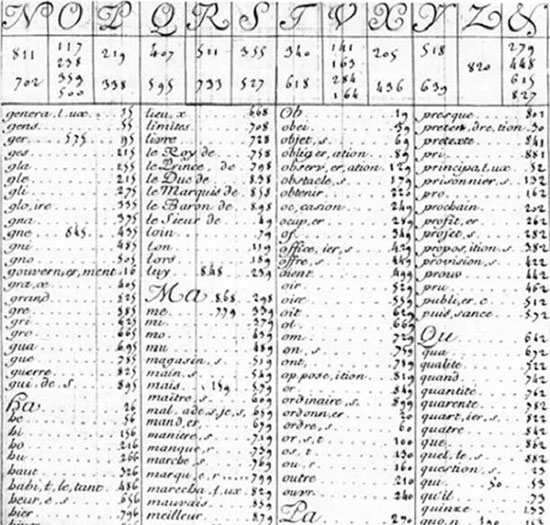 N O P Q R S T V X Y Z &
117 141 279
811 219 407 511 355 340 205 518
238 163 448
820
359 284 615
702 338 595 733 527 618 436 639
500 164 827
genera,l,ux 35
gens 55
ger 575 95
ges 215
gla 255
gle 215
gli 275
glo,ire 335
gna 375
gne 845 435
gni 485
gno 505
gouvern,er,ment 16
gra,ce 405
grand 525
gre 585
gri 625
gro 665
gua 695
gue 785
guerre 825
gui,de,s 895
Ha 26
he 56
hi 156
ho 216
hu 266
haut 326
habi,t,le,tant 486
heur,e,s 656
hier 796
lieu,x 668
limites 708
livre 728
le Roy de 758
le Prince de 798
le Duc de 838
le Marquis de 858
le Baron de 898
le Sieur de 49
loin 79
lon 119
lors 189
luy 848 239
Ma 868 298
me 779 339
mi 379
mo 439
mu 489
magasin,s 519
main,s 549
mais 159 599
maitre,s 609
mal,ade,s,ie,s 659
mand,er 699
maniere,s 719
manque 739
marche 769
marqu,e,r 799
marecha,l,ux 829
mauvais 859
meilleur 879
Ob 19
obei 59
objet,s 69
obliger,ation 89
observ,er,ation 129
obstacle,s 179
obtenir 225
oc,casion 249
ocup,er 289
of 349
office,ier,s 429
offre,s 449
oient 499
oir 529
oire 559
oit 629
ol 669
om 729
on,s 759
ont 789
op,pose,ition 819
or 849
ordinaire,s 899
ordonn,er 20
ordre,s 60
or,s,t 100
os,t 130
ou,r 160
outre 210
ouvr 240
Pa 270
presque 801
preten,dre,tion 30
pretexte 841
pri 881
principa,l,ux 52
prisonnier,s 132
pro 162
prochain 202
profit,er 262
projet,s 282
propos,ition,s 382
provision,s 422
prouv 442
pru 462
publi,er,c 512
puis,sance 572
Qu 642
qua 672
qualité 522
quand 742
quantité 762
quarente 782
quart,ier,s 822
quatre 842
que 862
quel,le,s 882
question,s 23
qui 50 53
qu'il 73
quinze 133